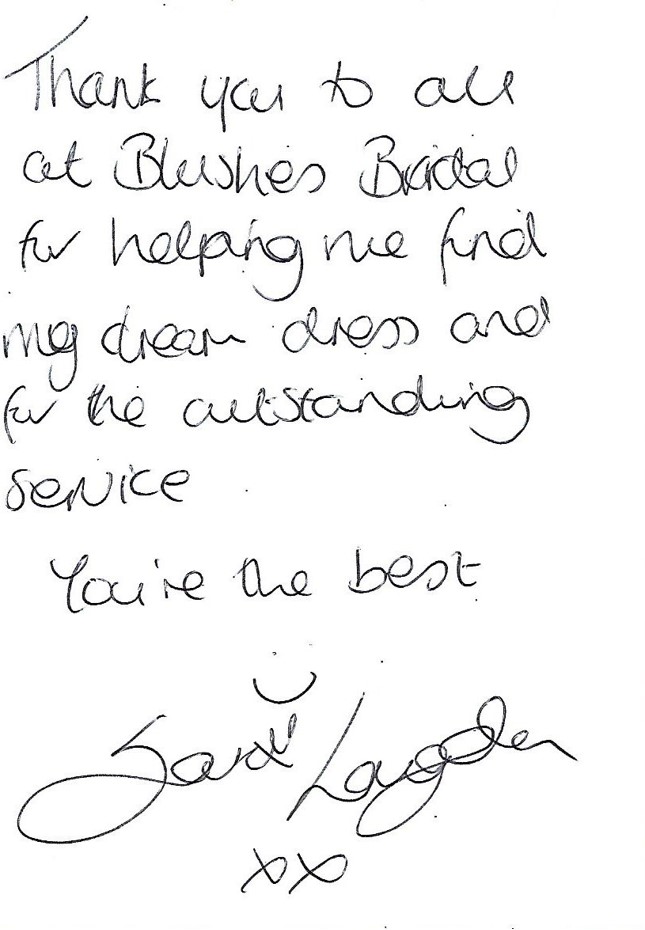 Thank you to all
at Blushes Bridal
for helping me find
my dream dress and
for the outstanding
service
You're the best
xx